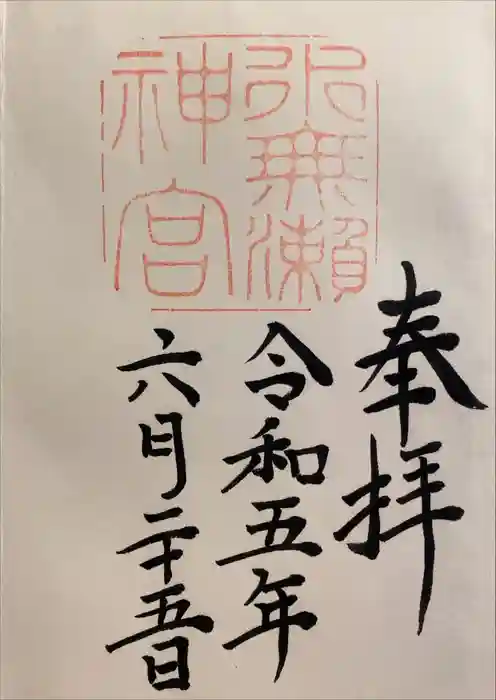 奉拝
水無瀬
神宮
令和五年
六月二十五日